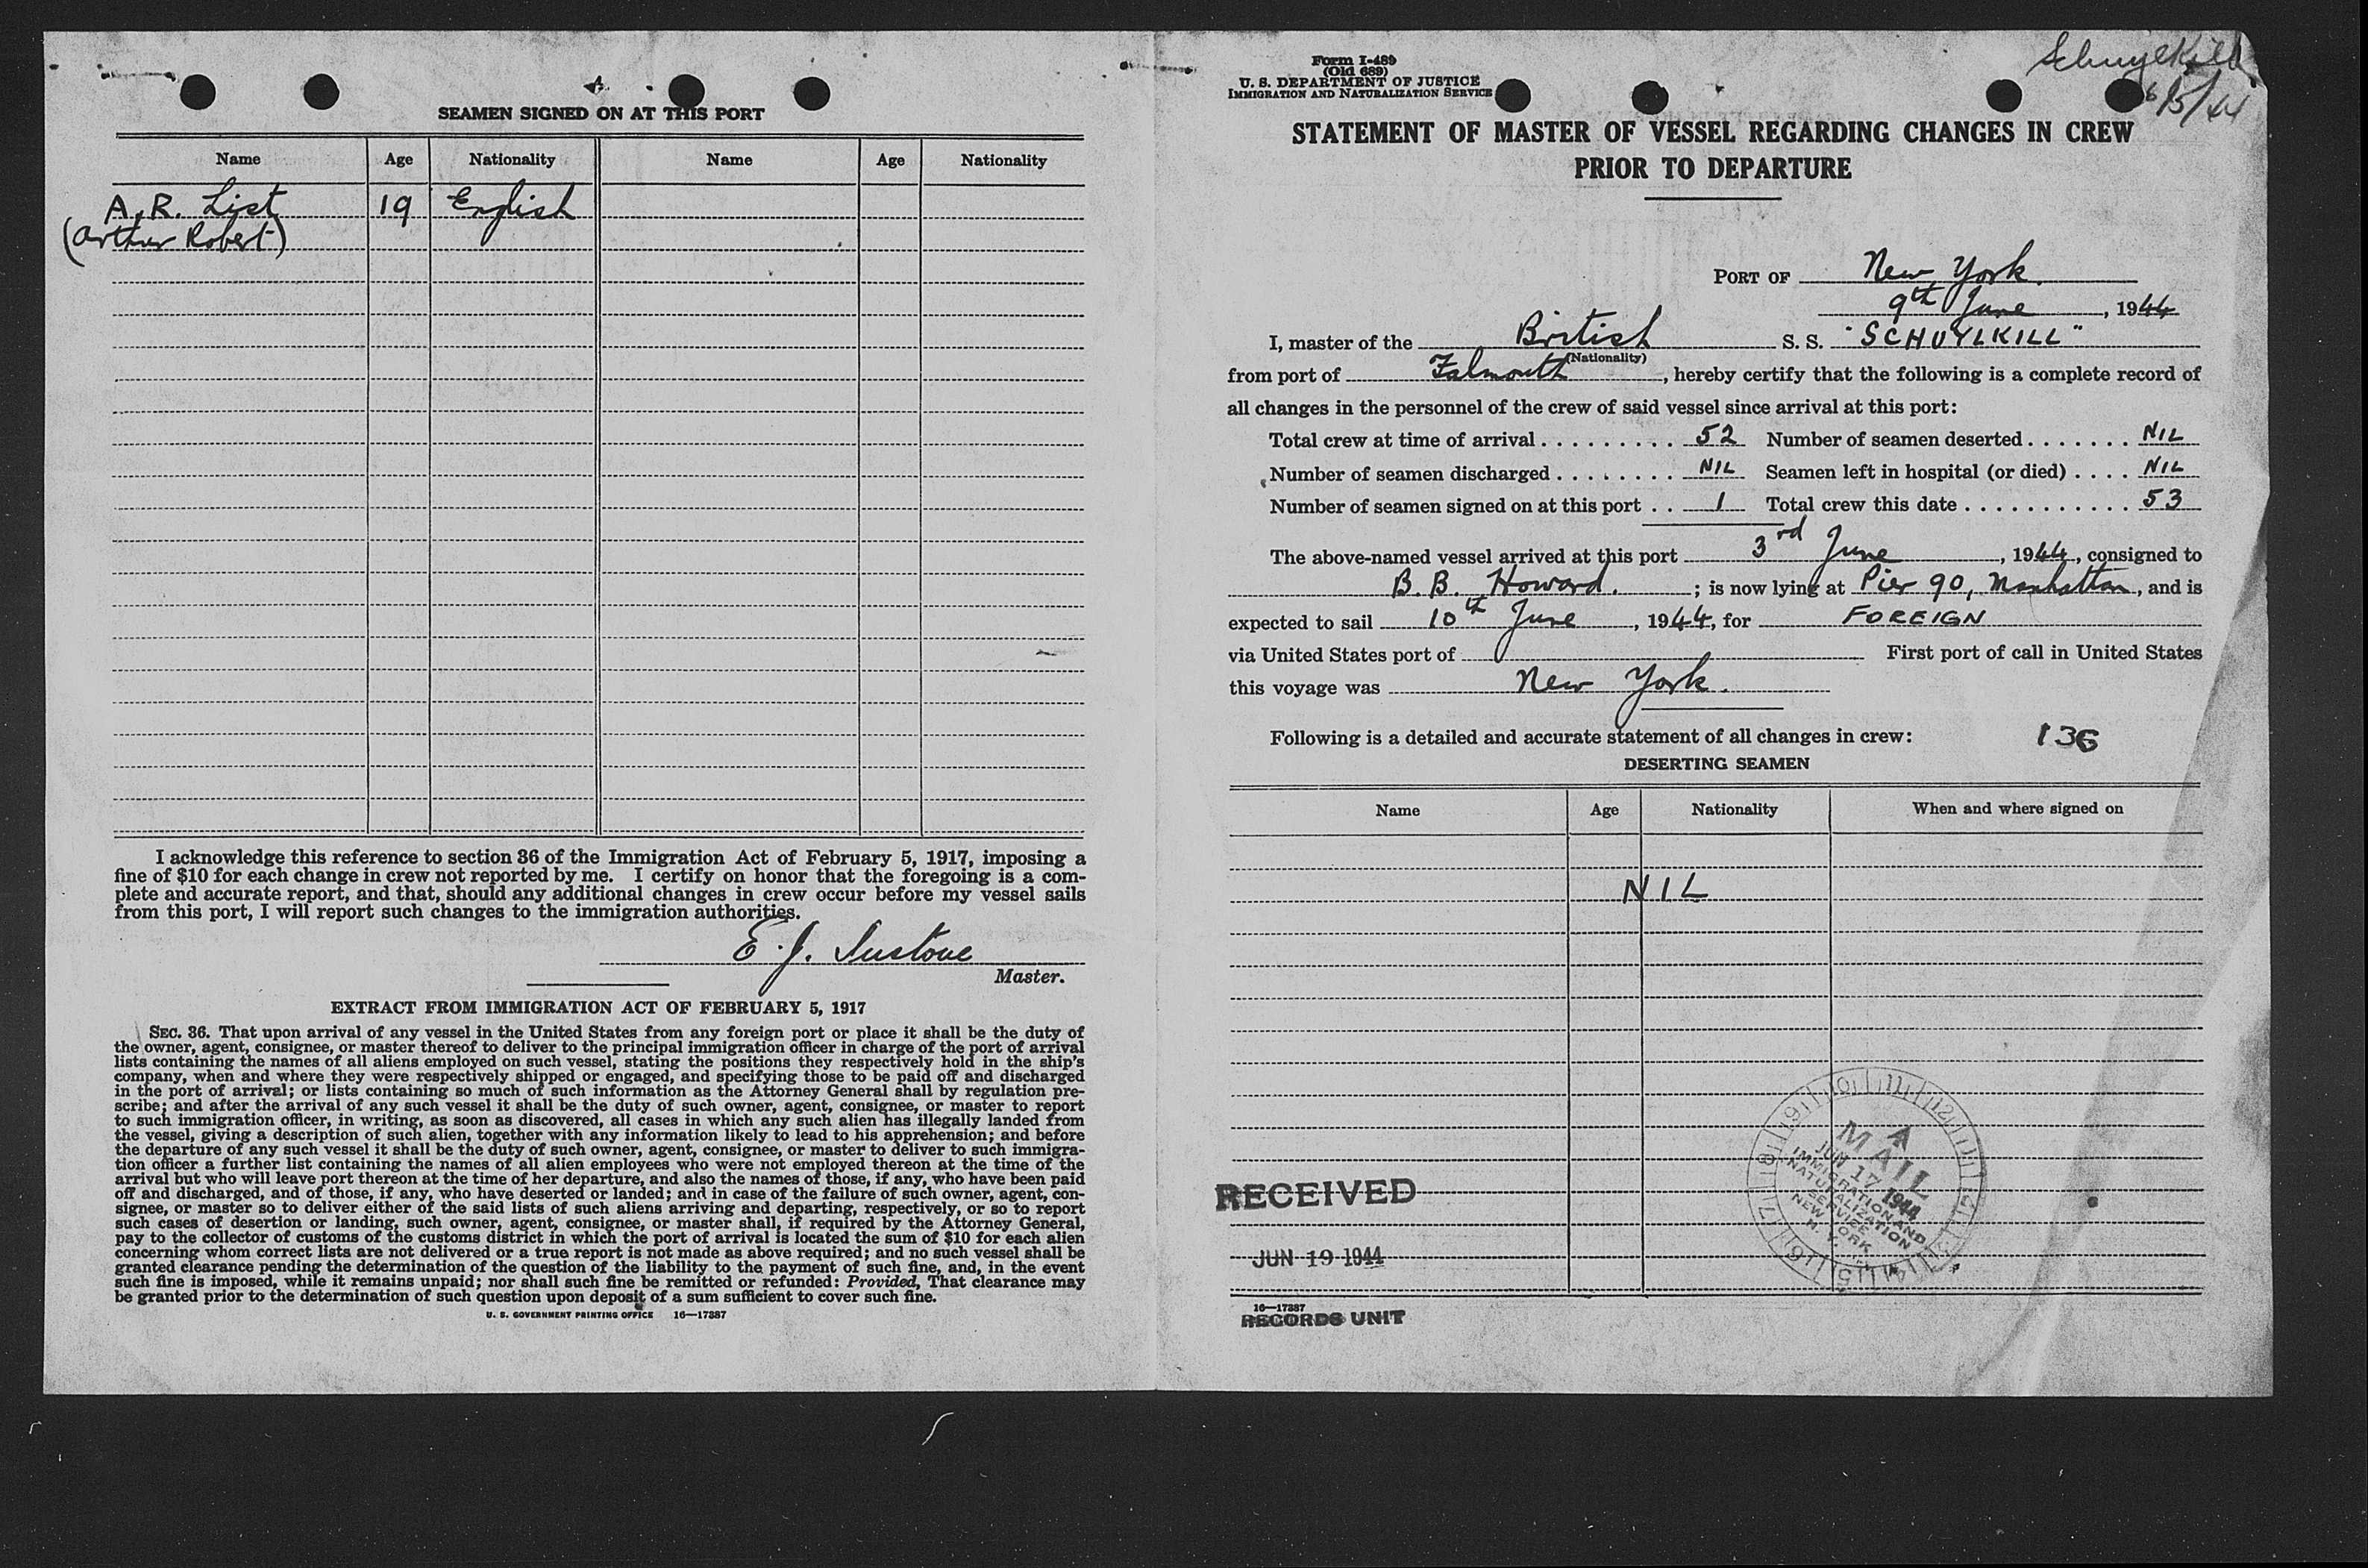 SEAMEN SIGNED ON AT THIS PORT
Name Age Nationality Name Age Nationality
A. R. List 19 English
(Arthur Robert)
I acknowledge this reference to section 36 of the Immigration Act of February 5, 1917, imposing a
fine of $10 for each change in crew not reported by me. I certify on honor that the foregoing is a com-
plete and accurate report, and that, should any additional changes in crew occur before my vessel sails
from this port, I will report such changes to the immigration authorities.
E. J.
Master.
EXTRACT FROM IMMIGRATION ACT OF FEBRUARY 5, 1917
SEC. 36. That upon arrival of any vessel in the United States from any foreign port or place it shall be the duty of
the owner, agent, consignee, or master thereof to deliver to the principal immigration officer in charge of the port of arrival
lists containing the names of all aliens employed on such vessel, stating the positions they respectively hold in the ship's
company, when and where they were respectively shipped or engaged, and specifying those to be paid off and discharged
in the port of arrival; or lists containing so much of such information as the Attorney General shall by regulation pre-
scribe; and after the arrival of any such vessel it shall be the duty of such owner, agent, consignee, or master to report
to such immigration officer, in writing, as soon as discovered, all cases in which any such alien has illegally landed from
the vessel, giving a description of such alien, together with any information likely to lead to his apprehension; and before
the departure of any such vessel it shall be the duty of such owner, agent, consignee, or master to deliver to such immigra-
tion officer a further list containing the names of all alien employees who were not employed thereon at the time of the
arrival but who will leave port thereon at the time of her departure, and also the names of those, if any, who have been paid
off and discharged, and of those, if any, who have deserted or landed; and in case of the failure of such owner, agent, con-
signee, or master so to deliver either of the said lists of such aliens arriving and departing, respectively, or so to report
such cases of desertion or landing, such owner, agent, consignee, or master shall, if required by the Attorney General,
pay to the collector of customs of the customs district in which the port of arrival is located the sum of $10 for each alien
concerning whom correct lists are not delivered or a true report is not made as above required; and no such vessel shall be
granted clearance pending the determination of the question of the liability to the payment of such fine, and, in the event
such fine is imposed, while it remains unpaid; nor shall such fine be remitted or refunded: Provided, That clearance may
be granted prior to the determination of such question upon deposit of a sum sufficient to cover such fine.
U. S. GOVERNMENT PRINTING OFFICE 16—17387
Form I-489
(Old 689)
U. S. DEPARTMENT OF JUSTICE
IMMIGRATION AND NATURALIZATION SERVICE
Schuylkill
6/5/44
STATEMENT OF MASTER OF VESSEL REGARDING CHANGES IN CREW
PRIOR TO DEPARTURE
PORT OF New York.
9th June, 1944
I, master of the British S. S. "SCHUYLKILL"
(Nationality)
from port of Falmouth, hereby certify that the following is a complete record of
all changes in the personnel of the crew of said vessel since arrival at this port:
Total crew at time of arrival......... 52 Number of seamen deserted....... NIL
Number of seamen discharged........ NIL Seamen left in hospital (or died).... NIL
Number of seamen signed on at this port.. 1 Total crew this date........... 53
The above-named vessel arrived at this port 3rd June, 1944, consigned to
B. B. Howard. ; is now lying at Pier 90, Manhattan, and is
expected to sail 10th June, 1944, for FOREIGN
via United States port of First port of call in United States
this voyage was New York.
Following is a detailed and accurate statement of all changes in crew: 136
DESERTING SEAMEN
Name Age Nationality When and where signed on
NIL
10 11 12 1 2 3 4 5 6 7 8 9
A
MAIL
JUN 17 1944
IMMIGRATION AND
NATURALIZATION
SERVICE
NEW YORK
N. Y.
RECEIVED
JUN 19 1944
16—17387
RECORDS UNIT